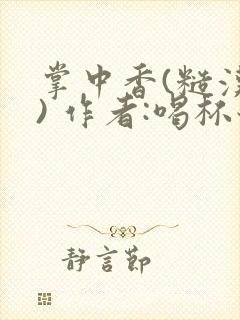 掌中香(糙漢
) 作者:喝杯
静言节